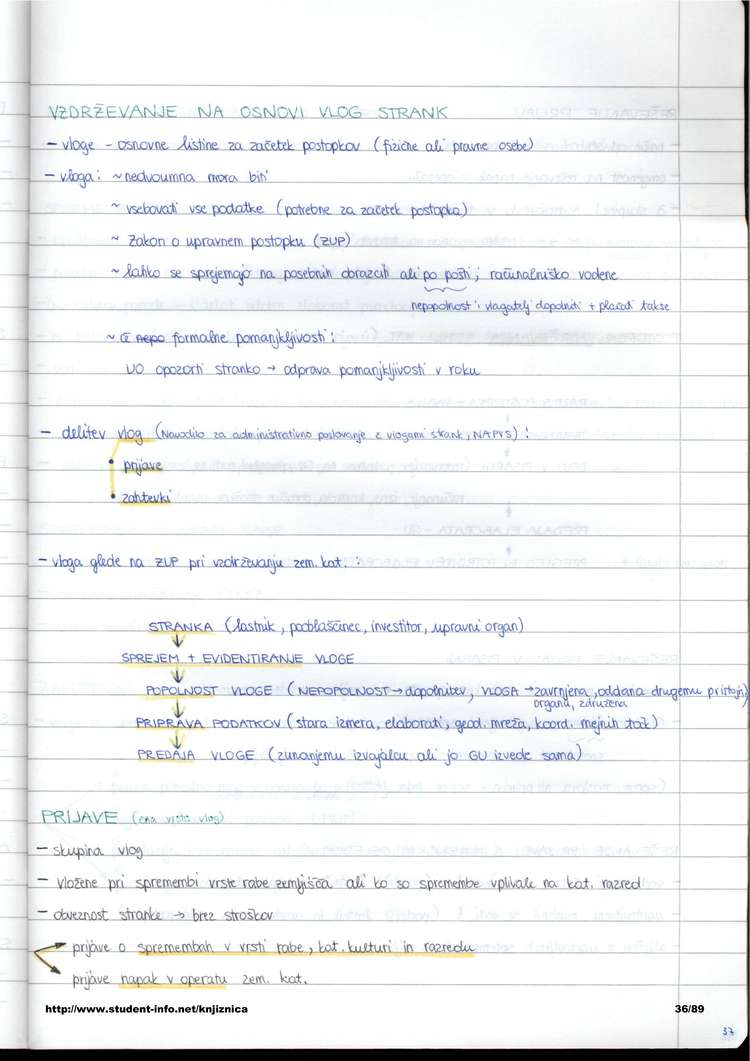 VZDRŽEVANJE NA OSNOVI VLOG STRANK
- vloge - osnovne listine za začetek postopkov (fizične ali pravne osebe)
- vloga: ~ nedvoumna mora biti
~ vsebovati vse podatke (potrebne za začetek postopka)
~ Zakon o upravnem postopku (ZUP)
~ lahko se sprejemajo na posebnih obrazcih ali po pošti; računalniško vodene
nepopolnost: vlagatelj dopolniti + plačati takse
~ če formalne pomanjkljivosti:
UO opozori stranko → odprava pomanjkljivosti v roku
- delitev vlog (Navodilo za administrativno poslovanje z vlogami strank, NAPVS):
• prijave
• zahtevki
- vloga glede na ZUP pri vzdrževanju zem. kat.:
STRANKA (lastnik, pooblaščinec, investitor, upravni organ)
↓
SPREJEM + EVIDENTIRANJE VLOGE
↓
POPOLNOST VLOGE (NEPOPOLNOST → dopolnitev, VLOGA → zavrnjena, oddana drugemu pristojn.
organu, združena)
↓
PRIPRAVA PODATKOV (stara izmera, elaborati, geod. mreža, koord. mejnih točk)
↓
PREDAJA VLOGE (zunanjemu izvajalcu ali jo GU izvede sama)
PRIJAVE (ena vrsta vlog)
- skupina vlog
- vložene pri spremembi vrste rabe zemljišča ali ko so spremembe vplivale na kat. razred
- obveznost stranke → brez stroškov
→ prijave o spremembah v vrsti rabe, kat. kulturi in razredu
→ prijave napak v operatu zem. kat.
http://www.student-info.net/knjiznica 36/89
37